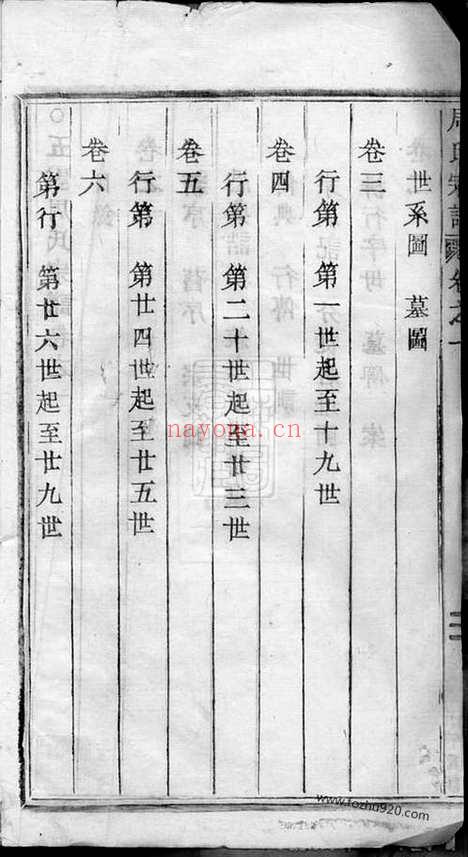 世系圖 墓圖
卷三
行第 第一世起至十九世
卷四
行第 第二十世起至廿三世
卷五
行第 第廿四世起至廿五世
卷六
第行 第廿六世起至廿九世
nayona.cn
www.tozhu920.com